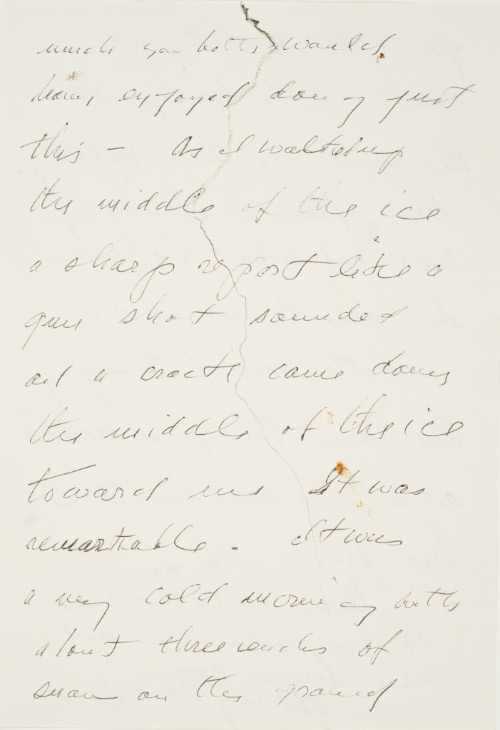 much you both would
have enjoyed doing just
this – As I walked up
the middle of the ice
a sharp report like a
gun shot sounded
and a crack came down
the middle of the ice
toward me It was
remarkable. It was
a very cold morning with
about three inches of
snow on the ground